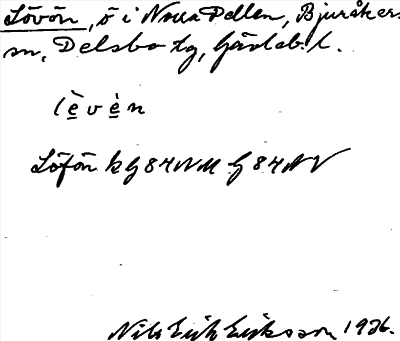 Lövön, ö i Norra Dellen, Bjuråkers
sn, Delsbo tg, Gävleb. l.
lèvèn
Löfön k G 84 NM G 84 NV
Nils Erik Eriksson 1926.